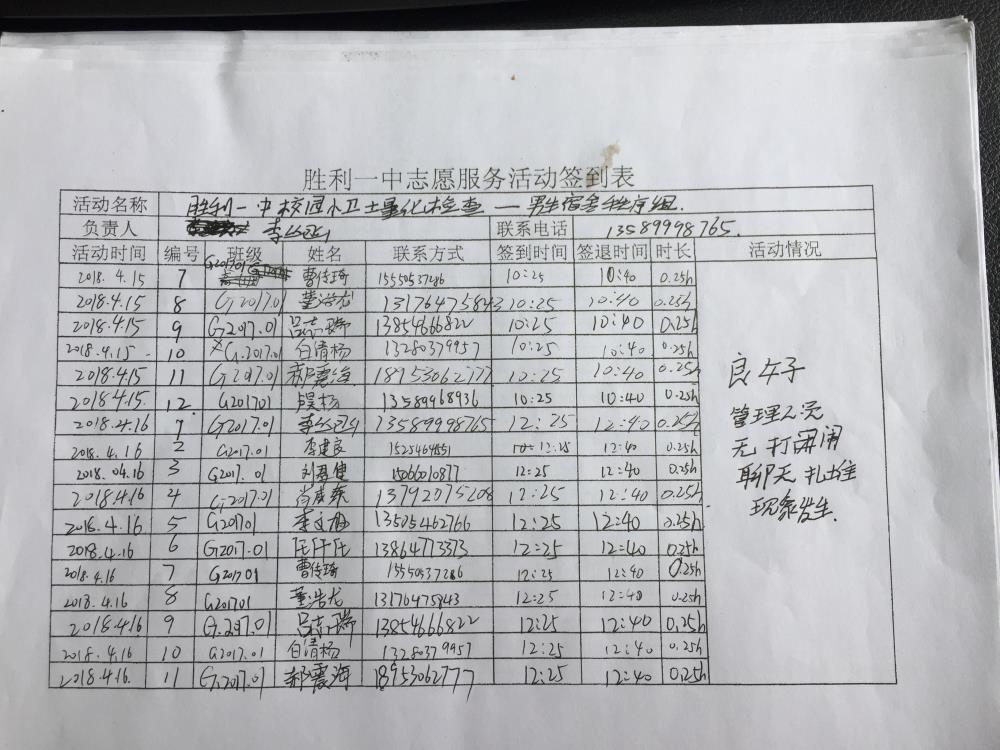 胜利一中志愿服务活动签到表
活动名称 胜利一中校园小卫士量化检查 — 男生宿舍秩序组.
负责人 联系电话 13589998765.
活动时间 编号 班级 姓名 联系方式 签到时间 签退时间 时长 活动情况
2018.4.15 7 G201701 曹传琦 15550537286 10:25 10:40 0.25h
2018.4.15 8 G2017.01 董浩龙 13176475843 10:25 10:40 0.25h
2018.4.15 9 G2017.01 吕志瑞 13854666822 10:25 10:40 0.25h
2018.4.15 10 G.2017.01 白清杨 13280379957 10:25 10:40 0.25h
2018.4.15 11 G2017.01 郝震海 18953062777 10:25 10:40 0.25h
2018.4.15. 12. G201701 13589968936 10:25 10:40 0.25h
2018.4.16 1 G2017.01 13589998765 12:25 12:40 0.25h
2018.4.16 2 G2017.01 李建良 12:25 12:40 0.25h
2018.04.16 3 G2017.01 15066010877 12:25 12:40 0.25h
2018.4.16 4 G2017.01 13792075208 12:25 12:40 0.25h
2018.4.16 5 G201701 13505462766 12:25 12:40 0.25h
2018.4.16 6 G2017.01 13864773373 12:25 12:40 0.25h
2018.4.16 7 G201701 曹传琦 15550537286 12:25 12:40 0.25h
2018.4.16 8 G201701 董浩龙 13176475843 12:25 12:40 0.25h
2018.4.16 9 G.2017.01 吕志瑞 13854666822 12:25 12:40 0.25h
2018.4.16 10 G2017.01 白清杨 13280379957 12:25 12:40 0.25h
2018.4.16. 11 G.2017.01 郝震海 18953062777 12:25 12:40 0.25h
良好
管理人员
无打闹
聊天扎堆
现象发生.